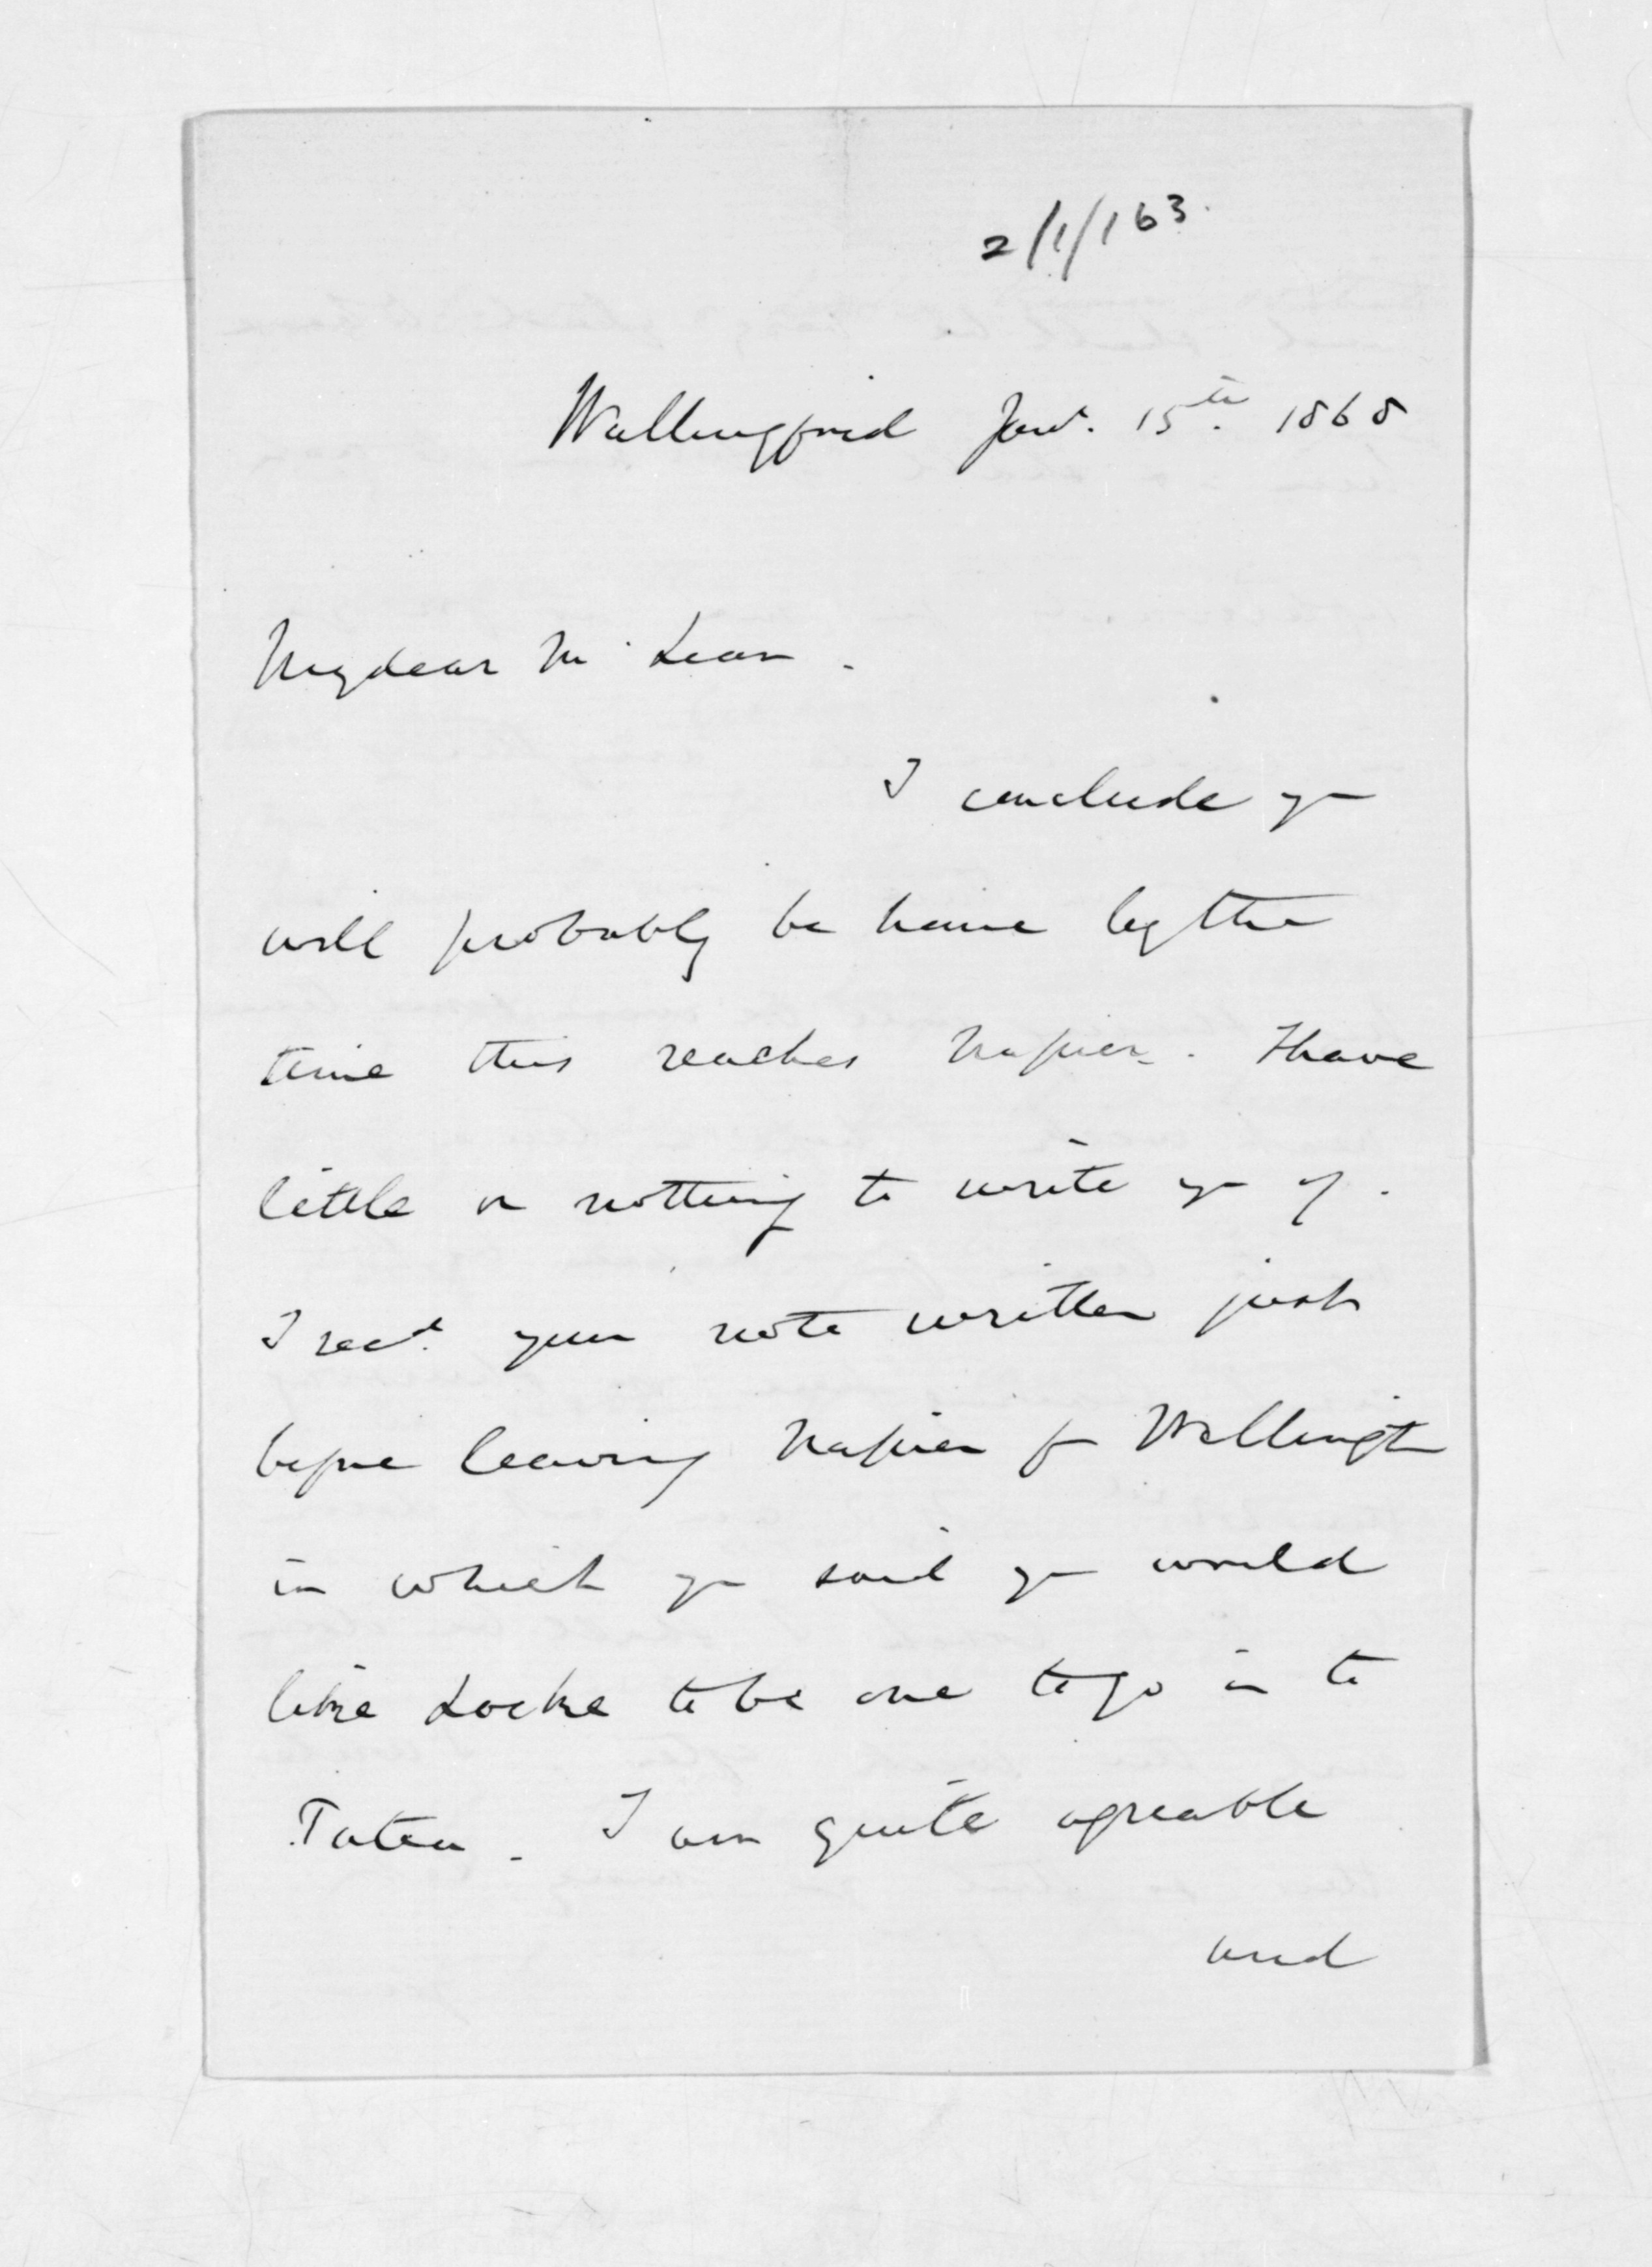 2/1/163.
Wallingford Jany. 15th. 1868
My dear McLean.
I conclude you
will probably be home by the
time this reaches Napier. I have
little or nothing to write you of.
I recd. your note written just
before leaving Napier for Wellington
in which you said you would
like Locke to be one to go in to
Tatea. I am quite agreable
and